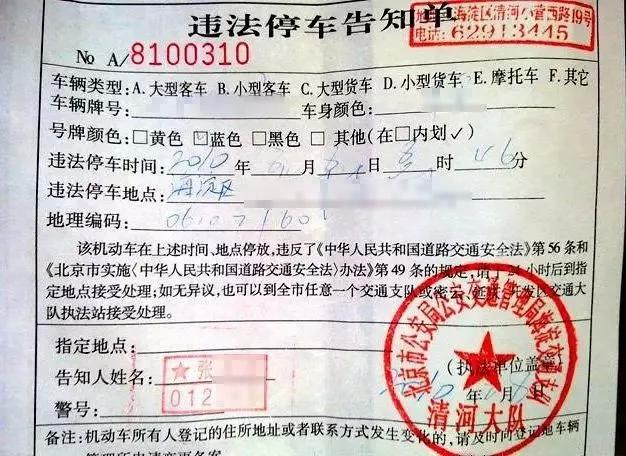 违法停车告知单
海淀区清河小营西路19号
电话: 62913445
No A/8100310
车辆类型: A.大型客车 B.小型客车 C.大型货车 D.小型货车 E.摩托车 F.其它
车辆牌号: 车身颜色:
号牌颜色: □黄色 ☑蓝色 □黑色 □其他(在□内划✓)
违法停车时间: 2010 年 月 日 时 46 分
违法停车地点: 海淀区
地理编码:
该机动车在上述时间、地点停放,违反了《中华人民共和国道路交通安全法》第56条和
《北京市实施〈中华人民共和国道路交通安全法〉办法》第49条的规定,请于24小时后到指
定地点接受处理;如无异议,也可以到全市任意一个交通支队或密云、延庆、开发区交通大
队执法站接受处理。
指定地点:
(执法单位盖章)
告知人姓名: ★张
012
2010 年 月 日
警号:
北京市公安局公安交通管理局海淀交通支队
清河大队
备注: 机动车所有人登记的住所地址或者联系方式发生变化的,请及时向登记地车辆
管理所申请变更备案